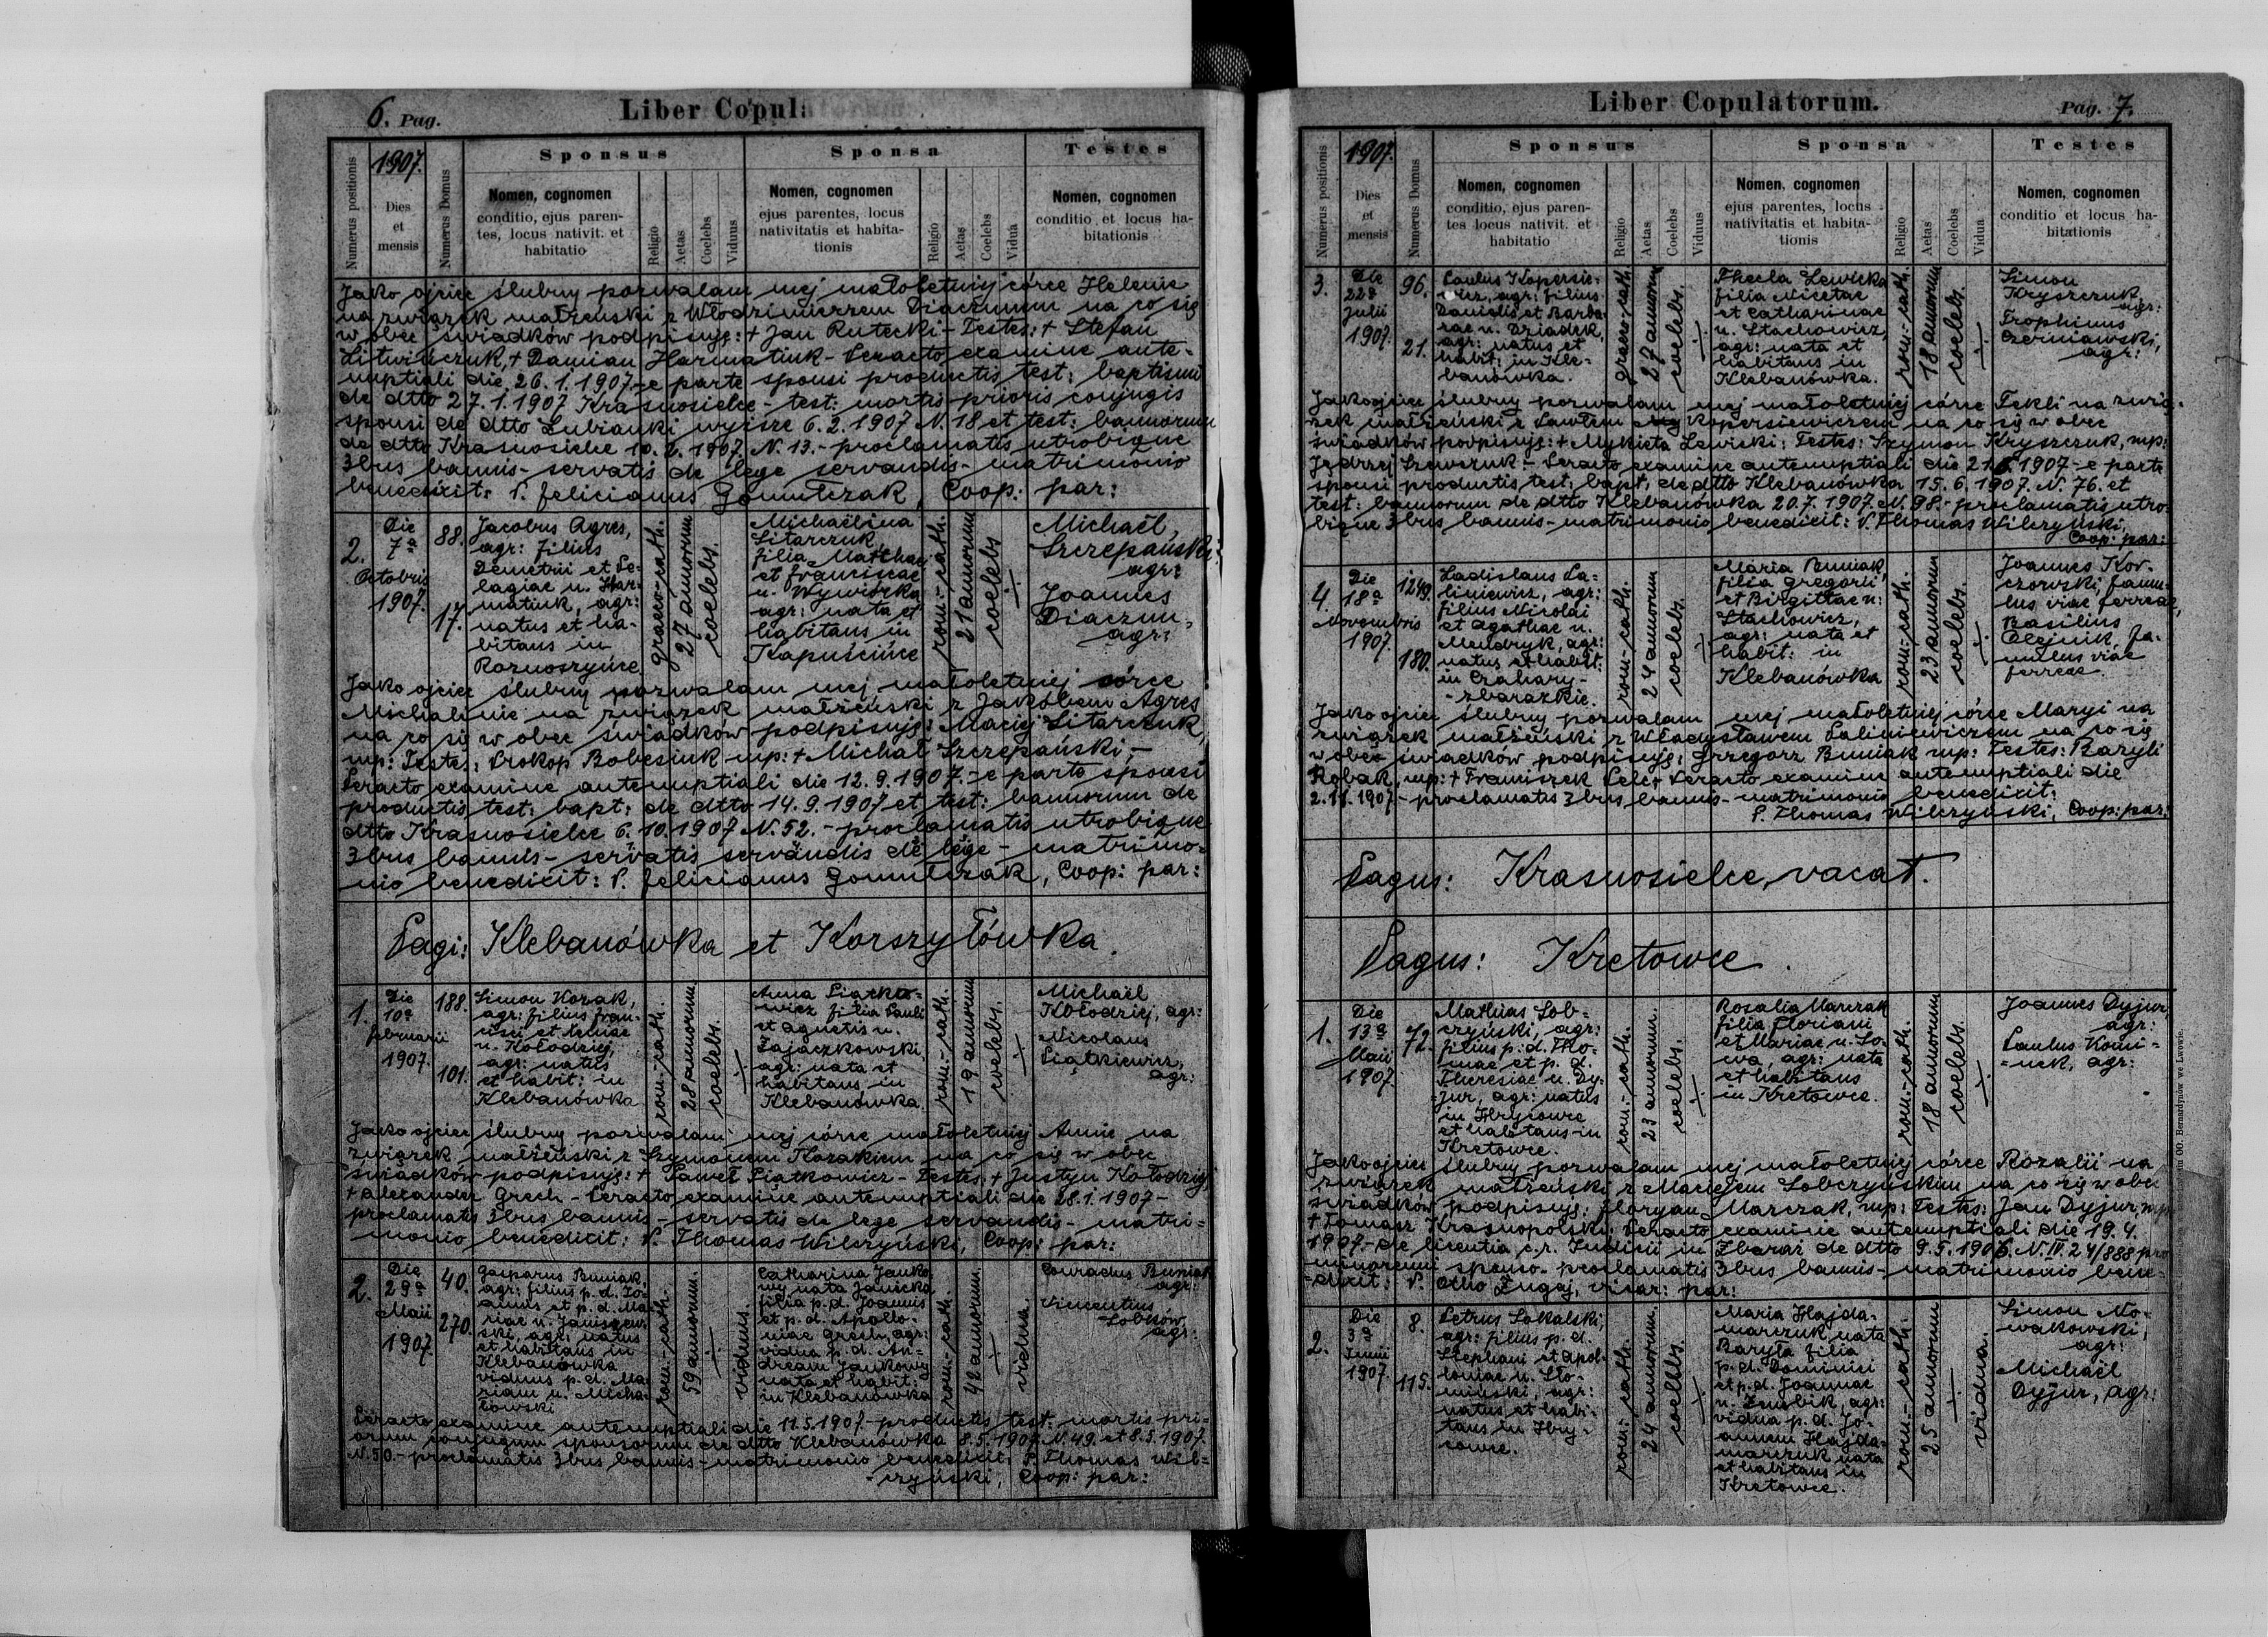 6. Pag.
Liber Copul:
Numerus positionis
1907.
Dies
et
mensis
Numerus Domus
Sponsus
Nomen, cognomen
conditio, ejus paren-
tes, locus nativit. et
habitatio
Religio
Aetas
Coelebs
Viduus
Sponsa
Nomen, cognomen
ejus parentes, locus
nativitatis et habita-
tionis
Religio
Aetas
Coelebs
Vidua
Testes
Nomen, cognomen
conditio et locus ha-
bitationis
Jako ojciec ślubny pozwalam mej małoletniej córce Helenie
na związek małżeński z Włodzimierzem Diaczunem na co się
w obec świadków podpisuję: + Jan Rutecki - Testes: + Stefan
Litwińczuk, + Damian Harmatiuk - Peracto examine ante-
nuptiali die 26.1.1907 - e parte sponsi productis test: baptism
de dtto 27.1.1907 Krasnosielce - test: mortis prioris conjugis
sponsi de dtto Lubianki wyższe 6.2.1907 N. 18 et test: bannorum
de dtto Krasnosielce 10.2.1907 N. 13. - proclamatis utrobique
3bus bannis - servatis de lege servandis - matrimonio
benedixit: P. Felicianus Gomułczak, Coop: par:
2.
Die
7ª
Octobris
1907.
88.
17.
Jacobus Agres,
agr: filius
Demetrii et Pe-
lagiae n. Har-
matiuk, agr:
natus et ha-
bitans in
Roznoszyńce
graeco-cath.
27 annorum
coelebs.
Michaëlina
Litarczuk,
filia Matthae
et Franciscae
n. Wywiórka
agr: nata et
habitans in
Kapuścińce
rom:-cath.
21 annorum
coelebs
Michaël
Szczepański
agr:
Joannes
Diaczun,
agr:
Jako ojciec ślubny pozwalam mej małoletniej córce
Michalinie na związek małżeński z Jakóbem Agres
na co się w obec świadków podpisuję: Maciej Litarczuk,
mp: Testes: Prokop Bobesiuk mp: + Michał Szczepański, -
Peracto examine antenuptiali die 12.9.1907. - e parte sponsi
productis test: bapt: de dtto 14.9.1907 et test: bannorum de
dtto Krasnosielce 6.10.1907 N. 52. - proclamatis utrobique
3bus bannis - servatis servandis de lege - matrimo-
nio benedixit: P. Felicianus Gomułczak, Coop: par:
Pagi: Klebanówka et Korszyłówka.
1.
Die
10ª
februarii
1907.
188.
101.
Simon Kozak,
agr: filius Fran-
cisci et Annae
n. Kołodziej,
agr: natus
et habit: in
Klebanówka
rom:-cath.
28 annorum
coelebs.
Anna Piątko-
wicz filia Pauli
et Agnetis n.
Zajączkowski,
agr: nata et
habitans in
Klebanówka.
rom:-cath.
19 annorum
coelebs.
Michaël
Kołodziej, agr:
Nicolaus
Piątkiewicz,
agr:
Jako ojciec ślubny pozwalam mej córce małoletniej Annie na
związek małżeński z Szymonem Kozakiem na co się w obec
świadków podpisuję: + Paweł Piątkowicz - Testes: + Justyn Kołodziej,
+ Alexander Grech - Peracto examine antenuptiali die 28.1.1907 -
proclamatis 3bus bannis - servatis de lege servandis - matri-
monio benedixit: P. Thomas Wilczyński, Coop: par:
2.
Die
29ª
Maii
1907.
40.
270.
Gasparus Buniak,
agr: filius p. d. Jo-
annis et p. d. Ma-
riae n. Janiszew-
ski, agr: natus
et habitans in
Klebanówka
viduus p. d. Ma-
riam n. Micha-
łowski
rom:-cath.
59 annorum.
viduus.
Catharina Janko-
wy nata Janicka,
filia p. d. Joannis
et p. d. Apollo-
niae Grech, agr:
vidua p. d. An-
dream Jankowy
nata et habit:
in Klebanówka
rom:-cath.
42 annorum.
vidua.
Conradus Buniak
agr:
Vincentius
Sobków,
agr:
Peracto examine antenuptiali die 11.5.1907 - productis test: mortis pri-
orum conjugum sponsorum de dtto Klebanówka 8.5.1907 N. 49. et 8.5.1907.
N. 50. - proclamatis 3bus bannis - matrimonio benedixit: P. Thomas Wil-
czyński, Coop: par:
Liber Copulatorum.
Pag. 7.
Numerus positionis
1907.
Dies
et
mensis
Numerus Domus
Sponsus
Nomen, cognomen
conditio, ejus paren-
tes locus nativit. et
habitatio
Religio
Aetas
Coelebs
Viduus
Sponsa
Nomen, cognomen
ejus parentes, locus
nativitatis et habita-
tionis
Religio
Aetas
Coelebs
Vidua
Testes
Nomen, cognomen
conditio et locus ha-
bitationis
3.
Die
22ª
Julii
1907.
96.
21.
Paulus Kopersie-
wicz, agr: filius
Danielis et Barba-
rae n. Dziadyk,
agr: natus et
habit: in Kle-
banówka.
graeco-cath.
27 annorum
coelebs.
Thecla Lewicka
filia Nicetae
et Catharinae
n. Stachowicz,
agr: nata et
habitans in
Klebanówka.
rom:-cath.
18 annorum
coelebs.
Simon
Kryszczuk,
agr:
Trophimus
Czerniawski,
agr:
Jako ojciec ślubny pozwalam mej małoletniej córce Tekli na zwią-
zek małżeński z Pawłem Kopersiewiczem na co się w obec
świadków podpisuję: + Mykieta Lewicki: Testes: Szymon Kryszczuk, mp:
Jędrzej Szewczuk - Peracto examine antenuptiali die 21.6.1907 - e parte
sponsi productis test: bapt: de dtto Klebanówka 15.6.1907. N. 76. et
test: bannorum de dtto Klebanówka 20.7.1907. N. 98. - proclamatis utro-
bique 3bus bannis - matrimonio benedixit: P. Thomas Wilczyński,
Coop: par:
4.
Die
18ª
Novembris
1907.
1249.
180.
Ladislaus Sa-
liniewicz, agr:
filius Nicolai
et Agathae n.
Mendryk, agr:
natus et habit:
in Czahary-
-zbarazkie.
rom:-cath.
24 annorum
coelebs.
Maria Buniak,
filia Gregorii
et Birgittae n:
Stachowicz,
agr: nata et
habit: in
Klebanówka
rom:-cath.
23 annorum
coelebs.
Joannes Kor-
czowski, famu-
lus viae ferreae,
Basilius
Olejnik, fa-
mulus viae
ferreae.
Jako ojciec ślubny pozwalam mej małoletniej córce Maryi na
związek małżeński z Władysławem Saliniewiczem na co się
w obec świadków podpisuję: Grzegorz Buniak mp: Testes: Bazyli
Robak, mp: + Franciszek Pelc + Peracto examine antenuptiali die
2.11.1907 - proclamatis 3bus bannis - matrimonio benedixit:
P. Thomas Wilczyński, Coop: par:
Pagus: Krasnosielce, vacat.
Pagus: Kretowce.
1.
Die
13ª
Maii
1907.
72.
Mathias Sob-
czyński, agr:
filius p: d. Tho-
mae et p. d.
Theresiae n. Dy-
jur, agr: natus
in Hrycowce
et habitans in
Kretowce.
rom:-cath.
23 annorum.
coelebs.
Rosalia Marczak
filia Floriani
et Mariae n. So-
wa, agr: nata
et habitans
in Kretowce.
rom:-cath.
18 annorum
coelebs.
Joannes Dyjur,
agr:
Paulus Komi-
-nek, agr:
Jako ojciec ślubny pozwalam mej małoletniej córce Rozalii na
związek małżeński z Maciejem Sobczyńskim na co się w obec
świadków podpisuję: Floryan Marczak, mp: Testes: Jan Dyjur, mp
+ Tomasz Krasnopolski. Peracto examine antenuptiali die 19.4.
1907 - de licentia c. r. Judicii in Zbaraż de dtto 9.5.1906. N. IV. 24/888 pro
minorenni sponso - proclamatis 3bus bannis - matrimonio bene-
dixit: P. Otho Zugaj, vicar: par:
2.
Die
3ª
Junii
1907.
8.
115.
Petrus Sokalski,
agr: filius p. d.
Stephani et Apol-
loniae n. Sło-
miński, agr:
natus et habi-
tans in Hry-
cowce.
rom:-cath.
24 annorum.
coelebs.
Maria Hajda-
marczuk nata
Baryła filia
p. d. Dominici
et p. d. Joannae
n. Zembik, agr:
vidua p. d. Jo-
annem Hajda-
marczuk nata
et habitans in
Kretowce.
rom:-cath.
25 annorum
vidua.
Simon No-
wakowski,
agr:
Michaël
Dyjur, agr:
OO. Bernardynów we Lwowie.